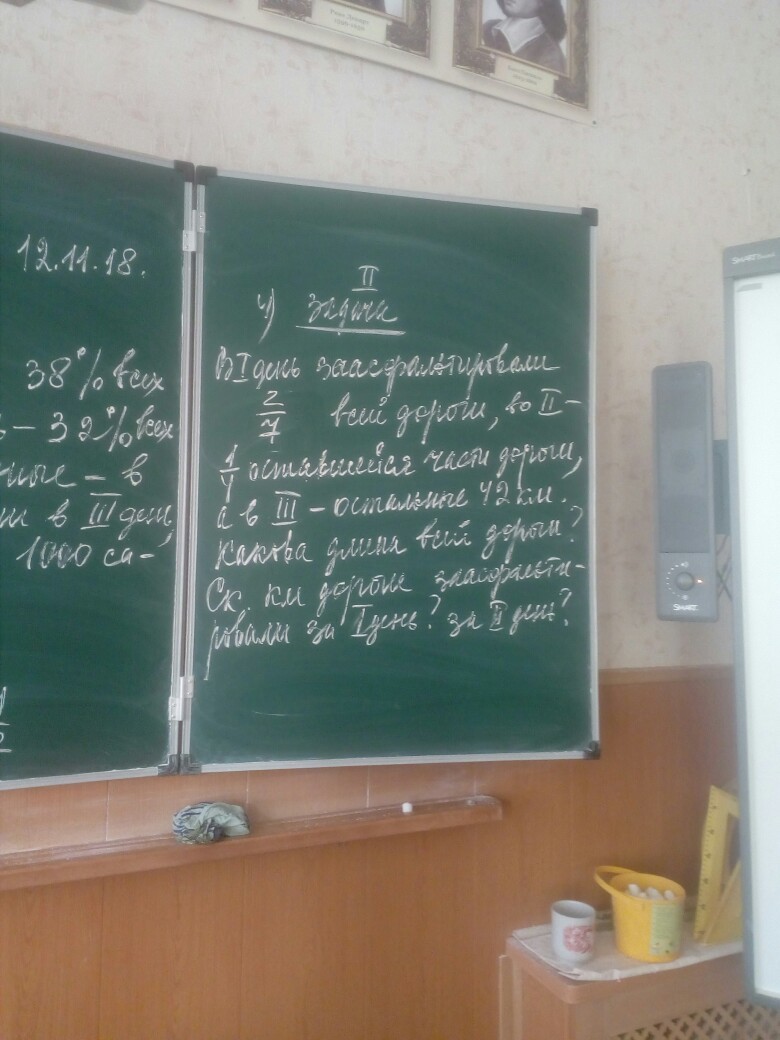 12.11.18.
38% всех
– 32% всех
ные – в
в III день,
1000 са-
1
2
II
4) Задача
В I день заасфальтировали
2/7 всей дороги, во II –
1/4 оставшейся части дороги,
а в III – остальные 42 км.
Какова длина всей дороги?
Ск. км дороги заасфальти-
ровали за I день? за II день?
SMART
SMART